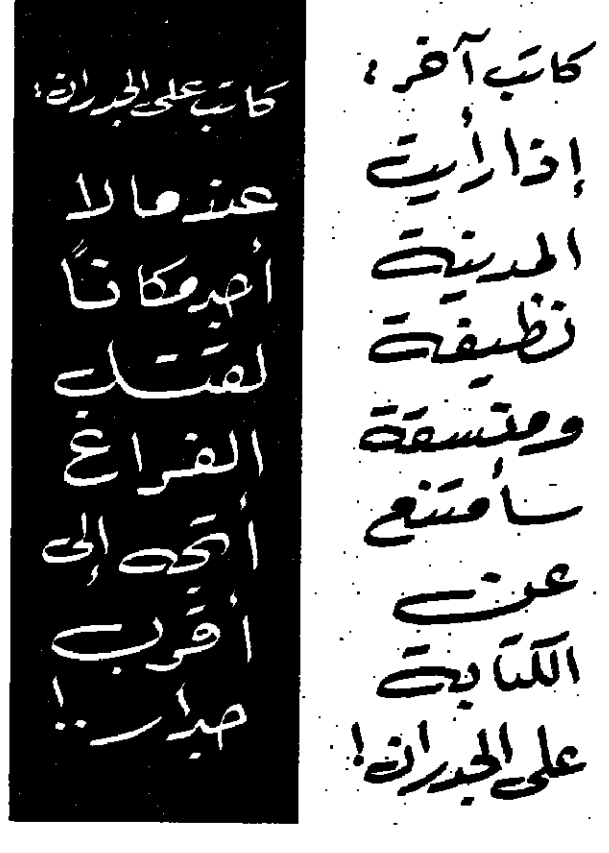 كاتب آخر:
إذا رأيت
المدينة
نظيفة
ومتسقة
سأمتنع
عن
الكتابة
على الجدران!
كاتب على الجدران:
عندما لا
أجد مكاناً
لقتل
الفراغ
أتجه إلى
أقرب
جدار..!